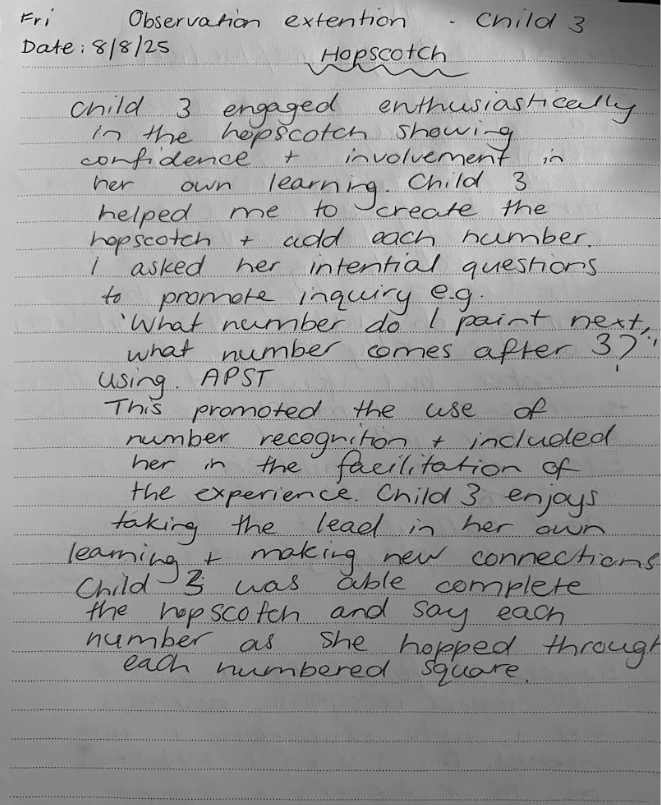 Fri Observation extention - Child 3
Date: 8/8/25
Hopscotch
Child 3 engaged enthusiastically
in the hopscotch showing
confidence + involvement in
her own learning. Child 3
helped me to create the
hopscotch + add each number.
I asked her intential questions
to promote inquiry e.g.
'What number do I paint next,
what number comes after 3?''
using. APST
This promoted the use of
number recognition + included
her in the facilitation of
the experience. Child 3 enjoys
taking the lead in her own
learning + making new connections
Child 3 was able complete
the hopscotch and say each
number as she hopped through
each numbered square.